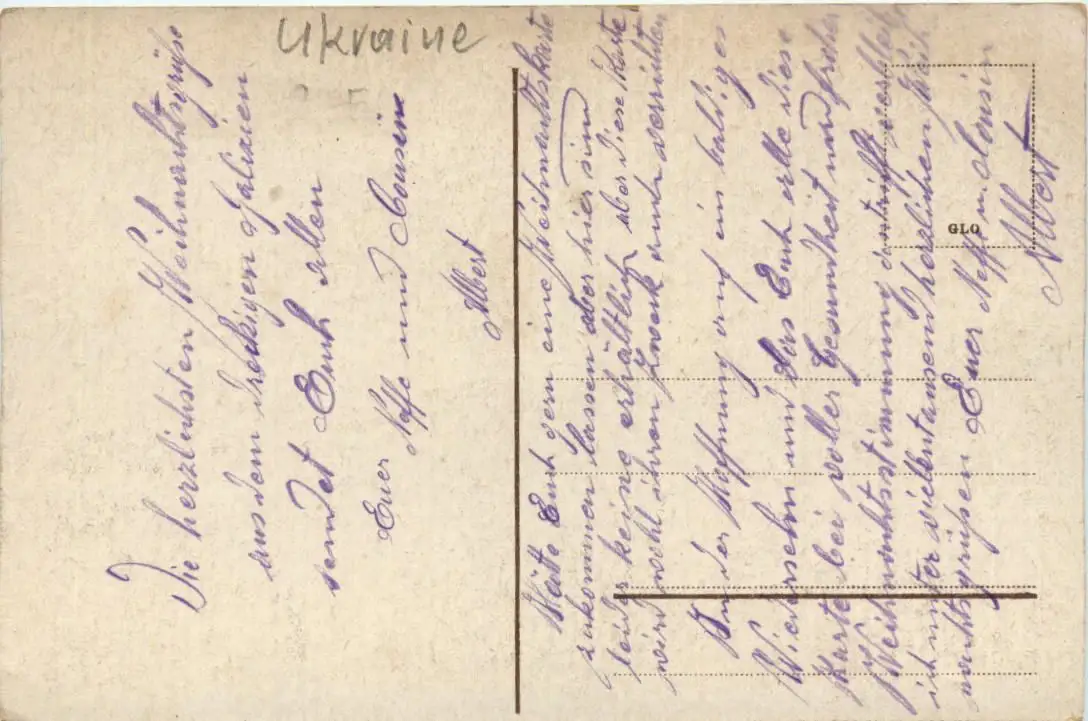 Ukraine
Die herzlichsten Weihnachtsgrüße
aus dem dreckigen Galizien
sendet Euch allen
Euer Neffe und Cousin
Albert
Hätte Euch gern eine Weihnachtskarte
zukommen lassen aber hier sind
leider keine erhältlich aber diese Karte
wird wohl ihren Zweck auch verrichten
In der Hoffnung auf ein baldiges
Wiedersehn und das Euch alle diese
Karte bei voller Gesundheit und froher
Weihnachtsstimmung antrifft verbleibe
ich unter vielentausend herzlichen Weih
nachtsgrüßen Euer Neffe u. Cousin
Albert
GLO